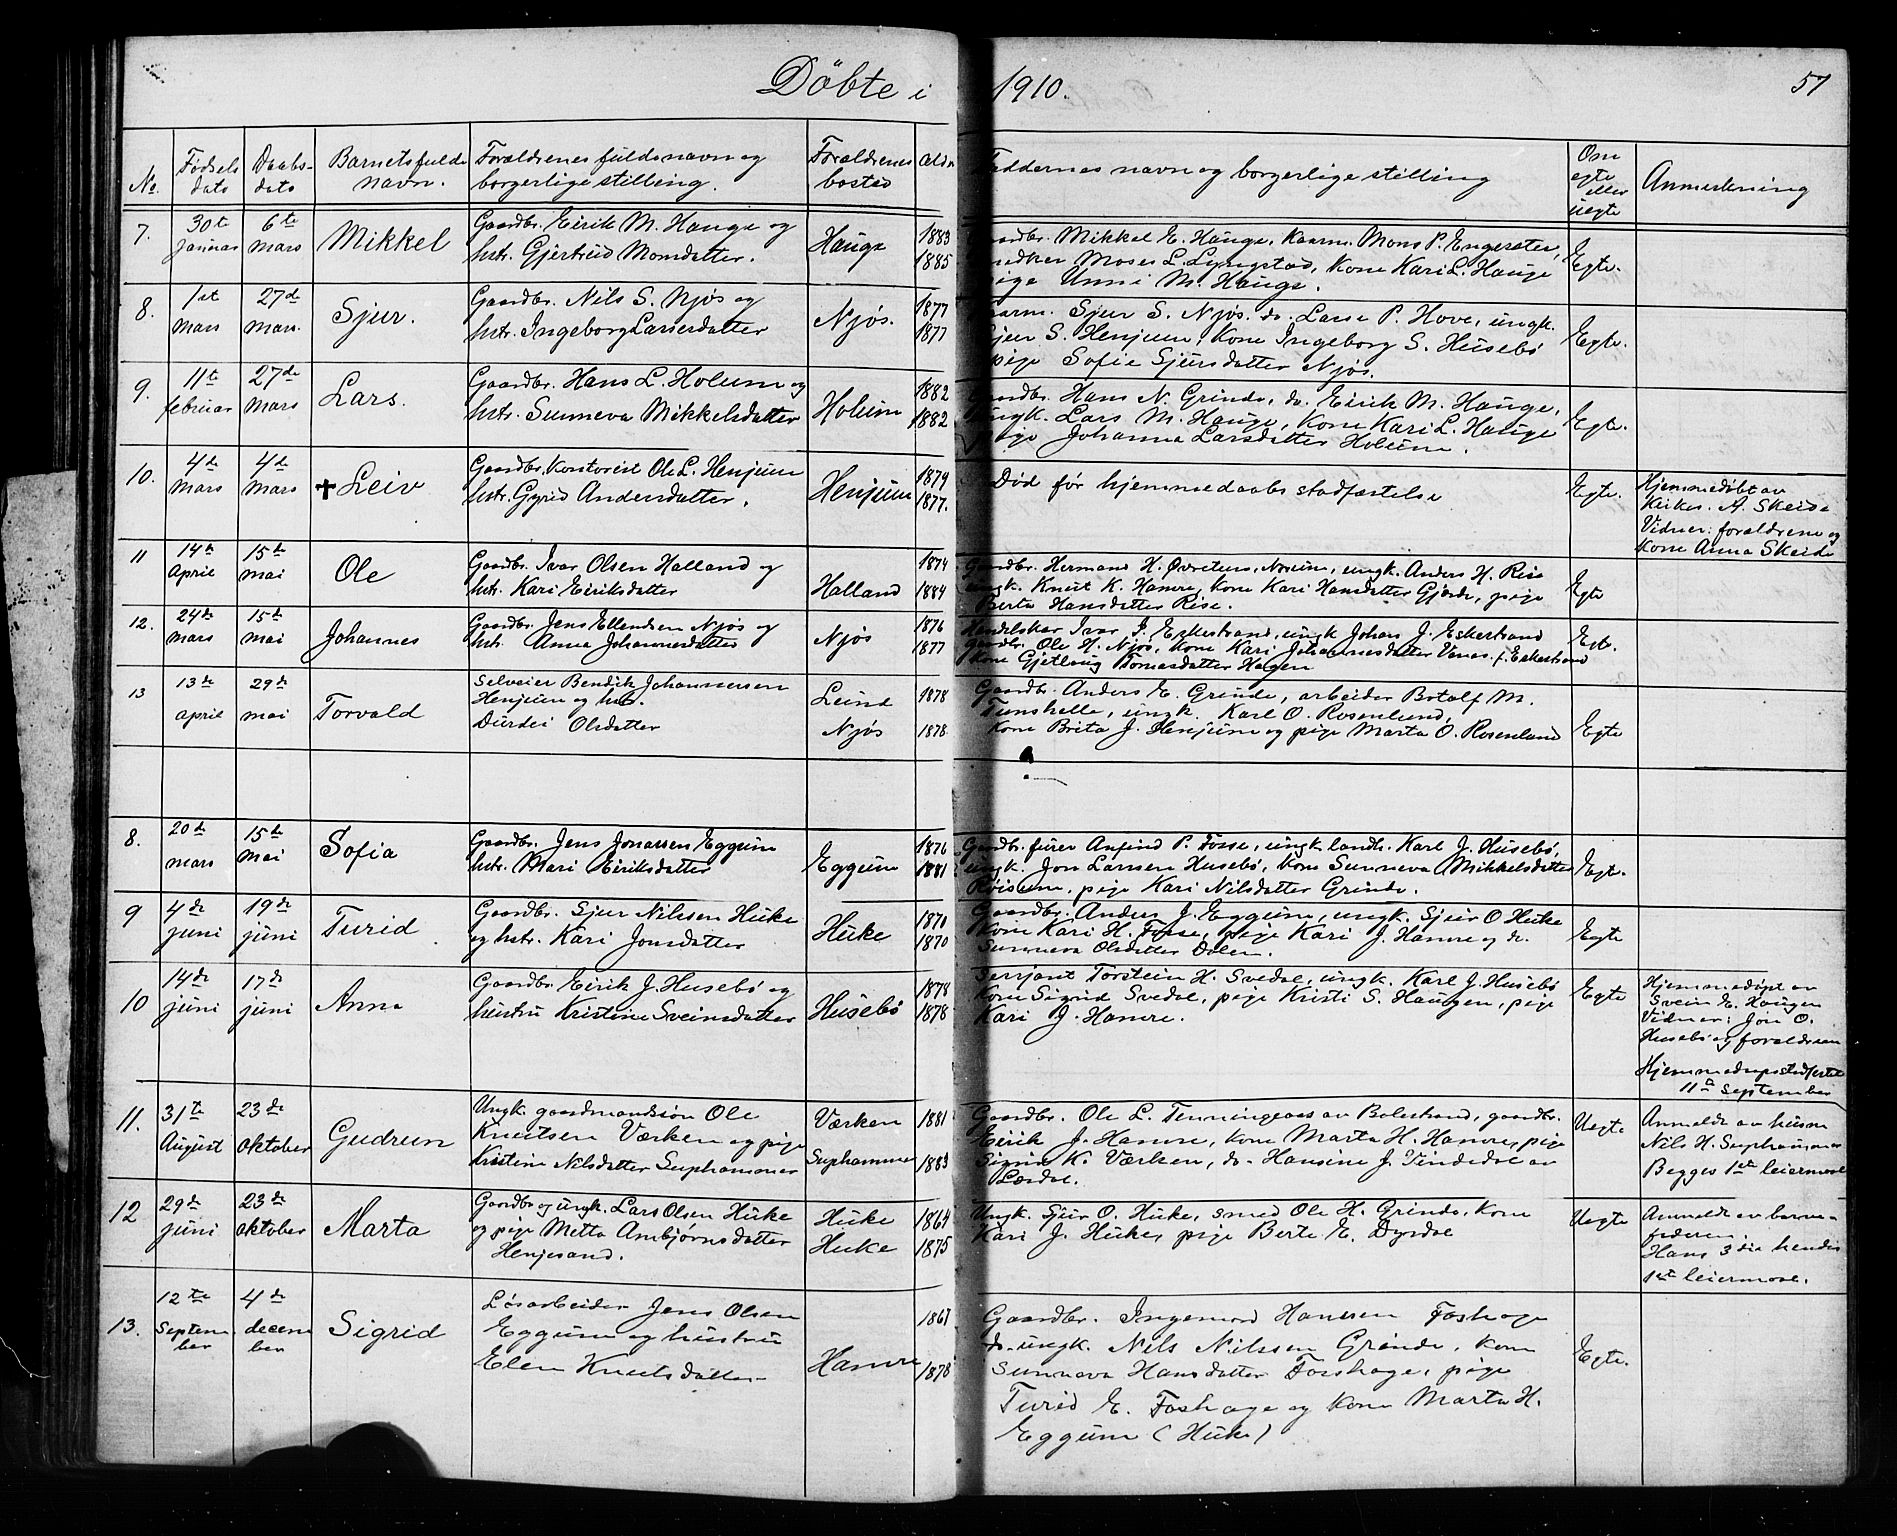 Döbte i 1910. 57
No. Fødsels dato Daabs- dato Barnets fulde navn. Forældrenes fulde navn og borgerlige stilling. Forældrenes bosted Alder Faddernes navn og borgerlige stilling Om egte eller uegte Anmerkning
7. 30te januar 6te mars Mikkel Gaardbr. Eirik M. Hauge og Hauge 1883
hstr. Gjertrud Monsdatter. 1885
Gaardbr. Mikkel E. Hauge, Kaarm. Mons P. Engerseter,
snedker Moses L. Lyngstad, kone Kari L. Hauge
pige Unni M. Hauge. Egte.
8. 1st mars 27de mars. Sjur. Gaardbr. Nils S. Njøs og Njøs. 1877
hstr. Ingeborg Larsesdatter 1877
Kaarm. Sjur S. Njøs, do. Lasse P. Hove, ungk.
Sjur S. Henjum, kone Ingeborg S. Husebø
pige Sofie Sjursdatter Njøs. Egte.
9. 11te februar 27de mars Lars. Gaardbr. Hans L. Holum og Holum 1882
hstr. Sunneva Mikkelsdatter 1882
Gaardbr. Hans N. Grinde, do. Eirik M. Hauge,
ungk. Lars M. Hauge, kone Kari L. Hauge
pige Johanna Larsdatter Holum. Egte.
10. 4de mars 4de mars † Leiv Gaardbr. Kontorist Ole L. Henjum Henjum 1879
hstr. Gyrid Andersdatter. 1877.
Død før hjemmedaabs stadfæstelse Egte.
Hjemmedøbt av
Kirkes. A. Skeide
Vidner: forældrene og
kone Anna Skeide
11 14de April 15de mai Ole Gaardbr. Ivar Olsen Halland og Halland 1874
hstr. Kari Eiriksdatter 1884
Gaardbr. Hermund H. Øvretun, Nesum, ungk. Anders H. Rise
ungk. Knut K. Hamre, kone Kari Hansdatter Gjerde, pige
Berta Hansdatter Rise. Egte
12. 24de mars 15de mai Johannes Gaardbr. Jens Ellendsen Njøs og Njøs 1876
hstr. Anna Johannesdatter 1877
Handelskar Ivar J. Eskestrand, ungk Johan J. Eskestrand
gardbr. Ole H. Njøs, kone Kari Johannesdatter f. Eskestrand
kone Gjetlaug Tomasdatter Hagen Egte.
13 13de april 29de mai Torvald Selveier Bendik Johannessen Leind 1878
Henjum og hst.
Durdei Olsdatter Njøs 1878.
Gaardbr. Anders E. Grinde, arbeider Botolf M.
Tunshelle, ungk. Karl O. Rosenlund,
kone Brita J. Henjum og pige Marta O. Rosenlund Egte
8. 20de mars 15de mai Sofia Gaardbr. Jens Jonassen Eggum Eggum 1876
hstr. Mari Eiriksdatter 1881
Gardbr. furer Anfind P. Fosse, ungk landb. Karl J. Husebø,
ungk. Jon Larssen Husebø, kone Sunneva Mikkelsdatter
Røisum, pige Kari Nilsdatter Grinde. Egte.
9 4de juni 19de juni Turid Gaardbr. Sjur Nilssen Huke Huke 1870
og hstr. Kari Jonsdatter 1870
Gaardbr. Anders J. Eggum, ungk. Sjur O Huke
kone Kari H. Fosse, pige Kari J. Hamre og do.
Sunneva Olsdatter Dalen. Egte
10 14de juni 17de juni Anna Gaardbr. Eirik J. Husebø og Husebø 1878
hustru Kristine Sveinsdatter 1878.
Serjant Torstein H. Svedal, ungk. Karl J. Husebø
kone Sigrid Svedal, pige Kristi S. Haugen, pige
Kari J. Hamre. Egte
Hjemmedøpt av
Svein E. Haugen
Vidner: Jon O.
Husebø og forældrene
Hjemmedaapsstadfestet
11te september
11. 31te August 23de oktober Gudrun Ungk. gaardmandssøn Ole Værken 1881
Knutsen Værken og pige
Kristine Nilsdatter Suphammer Suphammer 1883
Gaardbr. Ole L. Tenningeaas av Balestrand, gaardbr.
Eirik J. Hamre, kone Marta H. Hamre, pige
Signe K. Værken, do- Hansine J. Tindedal av
Lærdal. Uegte
Anmeldt av husm
Nils H. Suphammer
Begges 1ste leiermaal
12 29de juni 23de oktober Marta Gaardbr og ungk. Lars Olsen Huke Huke 1864
og pige Metta Ambjørnsdatter Huke 1875
Henjesand.
Ungk. Sjur O. Huke, smed Ole H. Grinde, kone
Kari J. Huke, pige Berte E. Dyrdal Uegte
Anmeldt av barne-
faderen.
Hans 3die hendes
1ste leiermaal.
13. 12te september 4de december Sigrid Løsarbeider Jens Olsen 1867
Eggum og hustru
Elen Knutsdatter Hamre 1878
Gaardbr. Ingemord Hanssen Foshage
do-ungk. Nils Nilssen Grinde, kone
Sunneva Hansdatter Foshage, pige
Turid E. Foshage og kone Marta H.
Eggum (Huke) Egte.